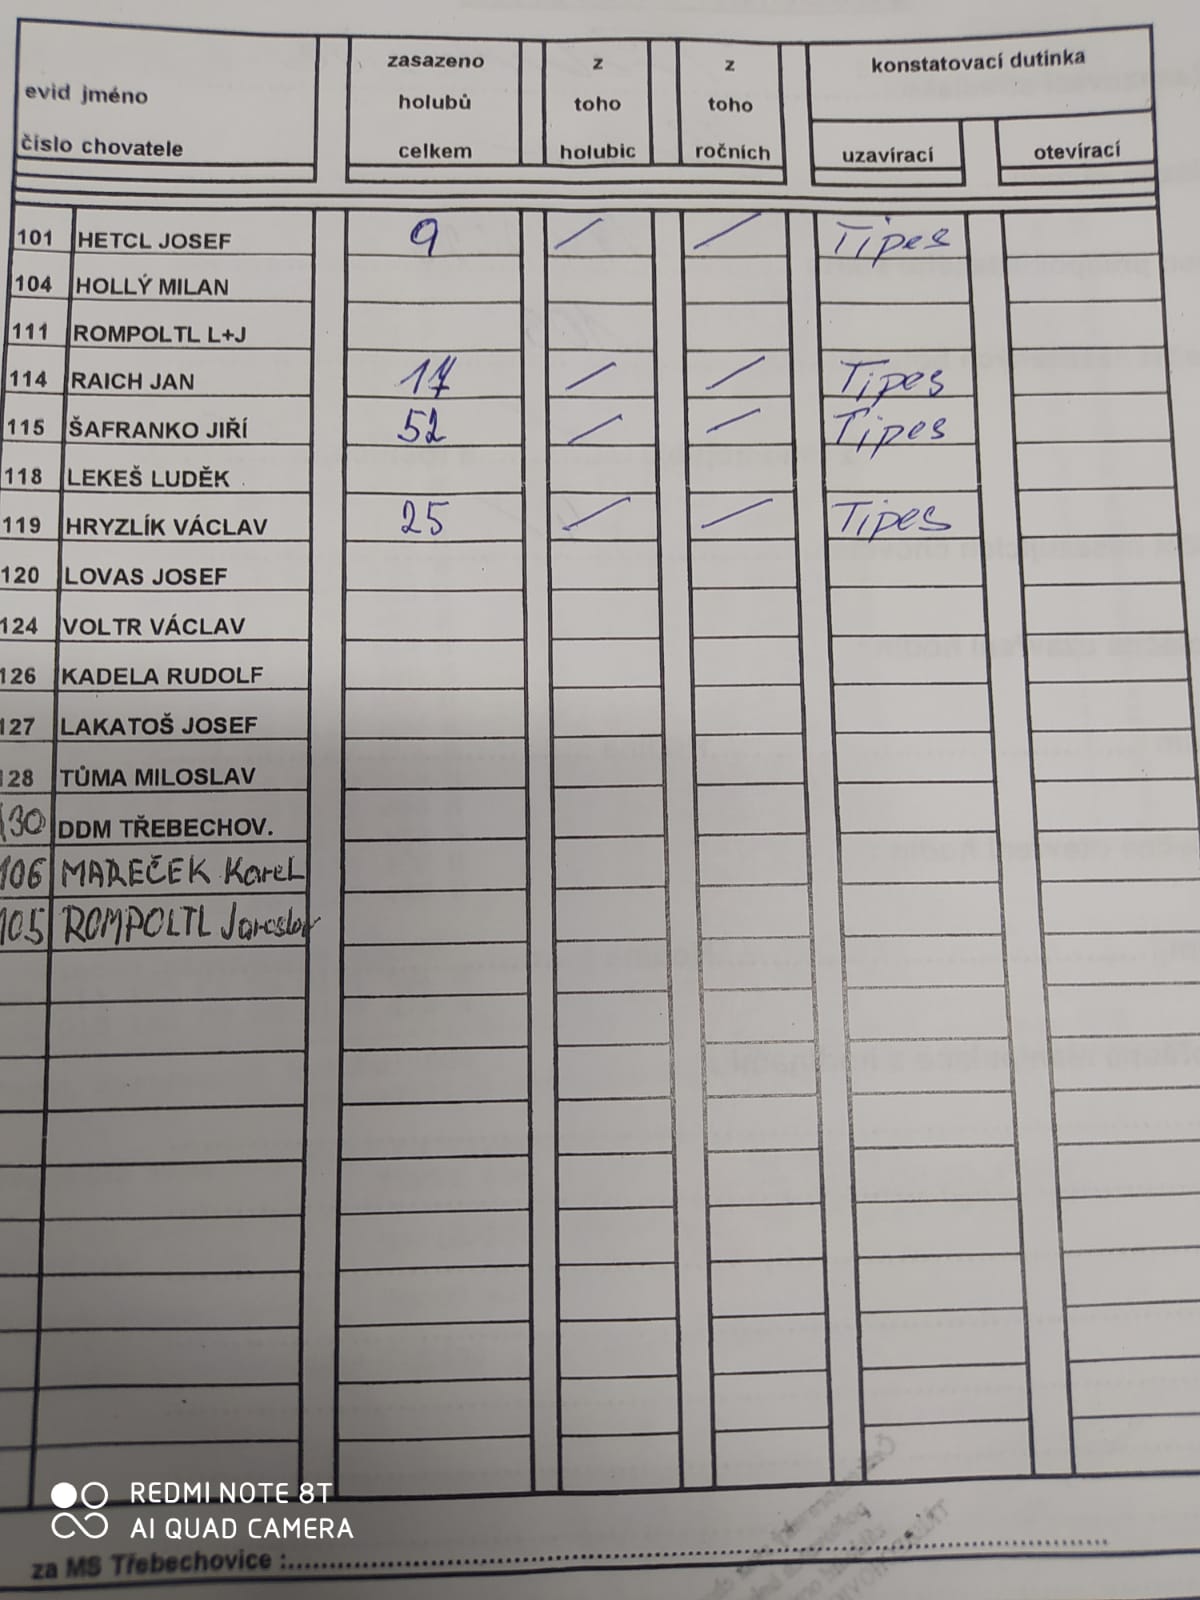 evid jméno
číslo chovatele
zasazeno
holubů
celkem
z
toho
holubic
z
toho
ročních
konstatovací dutinka
uzavírací
otevírací
101 HETCL JOSEF 9 / / Tipes
104 HOLLÝ MILAN
111 ROMPOLTL L+J
114 RAICH JAN 17 / / Tipes
115 ŠAFRANKO JIŘÍ 52 / / Tipes
118 LEKEŠ LUDĚK
119 HRYZLÍK VÁCLAV 25 / / Tipes
120 LOVAS JOSEF
124 VOLTR VÁCLAV
126 KADELA RUDOLF
127 LAKATOŠ JOSEF
128 TŮMA MILOSLAV
130 DDM TŘEBECHOV.
106 MAREČEK Karel
105 ROMPOLTL Jaroslav
REDMI NOTE 8T
AI QUAD CAMERA
za MS Třebechovice :